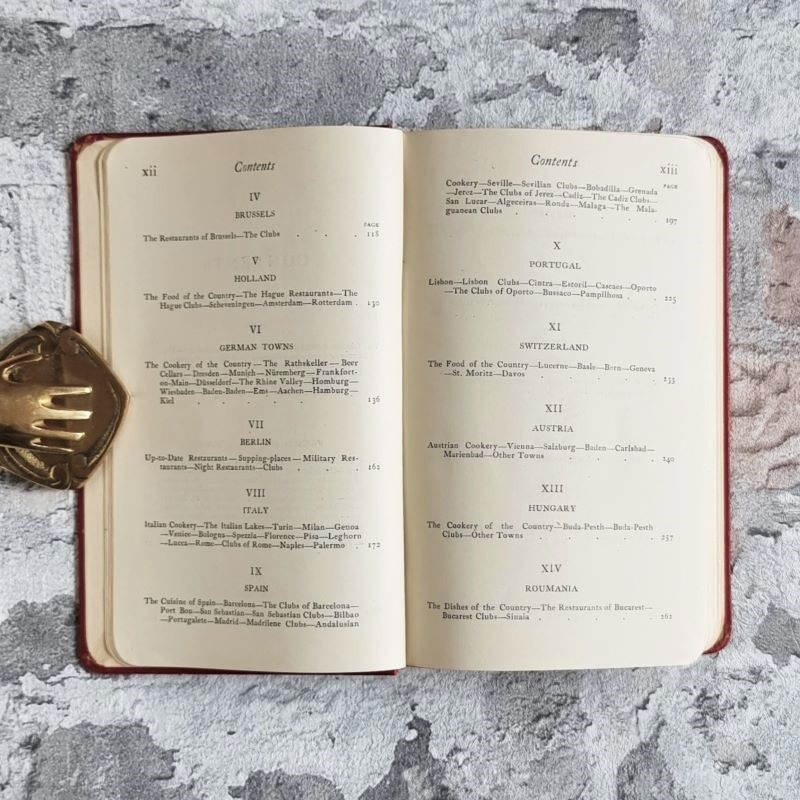 xii
Contents
IV
BRUSSELS
PAGE
The Restaurants of Brussels—The Clubs . . . . 118
V
HOLLAND
The Food of the Country—The Hague Restaurants—The
Hague Clubs—Scheveningen—Amsterdam—Rotterdam . 130
VI
GERMAN TOWNS
The Cookery of the Country—The Rathskeller—Beer
Cellars—Dresden—Munich—Nüremberg—Frankfort-
on-Main—Düsseldorf—The Rhine Valley—Homburg—
Wiesbaden—Baden-Baden—Ems—Aachen—Hamburg—
Kiel . . . . . . . 136
VII
BERLIN
Up-to-Date Restaurants—Supping-places—Military Res-
taurants—Night Restaurants—Clubs . . . . 162
VIII
ITALY
Italian Cookery—The Italian Lakes—Turin—Milan—Genoa
—Venice—Bologna—Spezzia—Florence—Pisa—Leghorn
—Lucca—Rome—Clubs of Rome—Naples—Palermo . 172
IX
SPAIN
The Cuisine of Spain—Barcelona—The Clubs of Barcelona—
Port Bou—San Sebastian—San Sebastian Clubs—Bilbao
—Portugalete—Madrid—Madrilene Clubs—Andalusian
Contents
xiii
PAGE
Cookery—Seville—Sevilian Clubs—Bobadilla—Grenada
—Jerez—The Clubs of Jerez—Cadiz—The Cadiz Clubs—
San Lucar—Algeciras—Ronda—Malaga—The Mala-
guanean Clubs . . . . . 197
X
PORTUGAL
Lisbon—Lisbon Clubs—Cintra—Estoril—Cascaes—Oporto
—The Clubs of Oporto—Bussaco—Pampilhosa . . 225
XI
SWITZERLAND
The Food of the Country—Lucerne—Basle—Bern—Geneva
—St. Moritz—Davos . . . . . 233
XII
AUSTRIA
Austrian Cookery—Vienna—Salzburg—Baden—Carlsbad—
Marienbad—Other Towns . . . . . 240
XIII
HUNGARY
The Cookery of the Country—Buda-Pesth—Buda-Pesth
Clubs—Other Towns . . . . . 257
XIV
ROUMANIA
The Dishes of the Country—The Restaurants of Bucarest—
Bucarest Clubs—Sinaia . . . . . 262